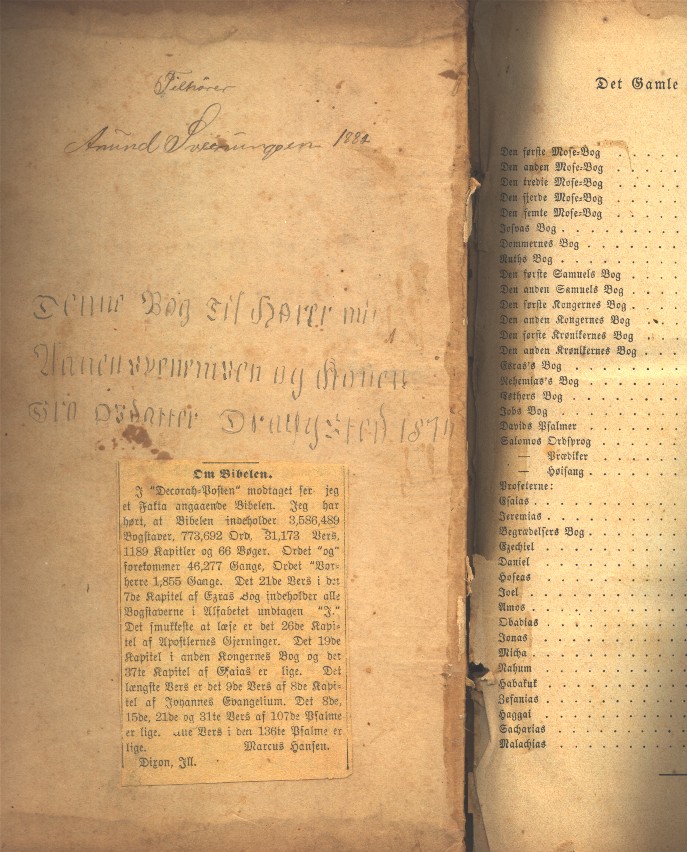 Tilhører
Anund Sveinungsen 1884
Denne Bog Til Hører mi
og Konen
Datter 187
Om Bibelen.
I "Decorah-Posten" modtaget ser jeg
et Fakta angaaende Bibelen. Jeg har
hørt, at Bibelen indeholder 3,586,489
Bogstaver, 773,692 Ord, 31,173 Vers,
1189 Kapitler og 66 Bøger. Ordet "og"
forekommer 46,277 Gange, Ordet "Vor-
herre 1,855 Gange. Det 21de Vers i det
7de Kapitel af Ezras Bog indeholder alle
Bogstaverne i Alfabetet undtagen "J."
Det smukkeste at læse er det 26de Kapi-
tel af Apostlernes Gjerninger. Det 19de
Kapitel i anden Kongernes Bog og det
37te Kapitel af Esaias er lige. Det
længste Vers er det 9de Vers af 8de Kapi-
tel af Johannes Evangelium. Det 8de,
15de, 21de og 31te Vers af 107de Psalme
er lige. Alle Vers i den 136te Psalme er
lige. Marcus Hansen.
Dixon, Ill.
Det Gamle
Den første Mose-Bog
Den anden Mose-Bog
Den tredie Mose-Bog
Den fjerde Mose-Bog
Den femte Mose-Bog
Josvas Bog
Dommernes Bog
Ruths Bog
Den første Samuels Bog
Den anden Samuels Bog
Den første Kongernes Bog
Den anden Kongernes Bog
Den første Krønikernes Bog
Den anden Krønikernes Bog
Esras's Bog
Nehemias's Bog
Esthers Bog
Jobs Bog
Davids Psalmer
Salomos Ordsprog
— Prædiker
— Høisang
Profeterne:
Esaias
Jeremias
Begrædelsers Bog
Ezechiel
Daniel
Hoseas
Joel
Amos
Obadias
Jonas
Micha
Nahum
Habakuk
Zefanias
Haggai
Sacharias
Malachias